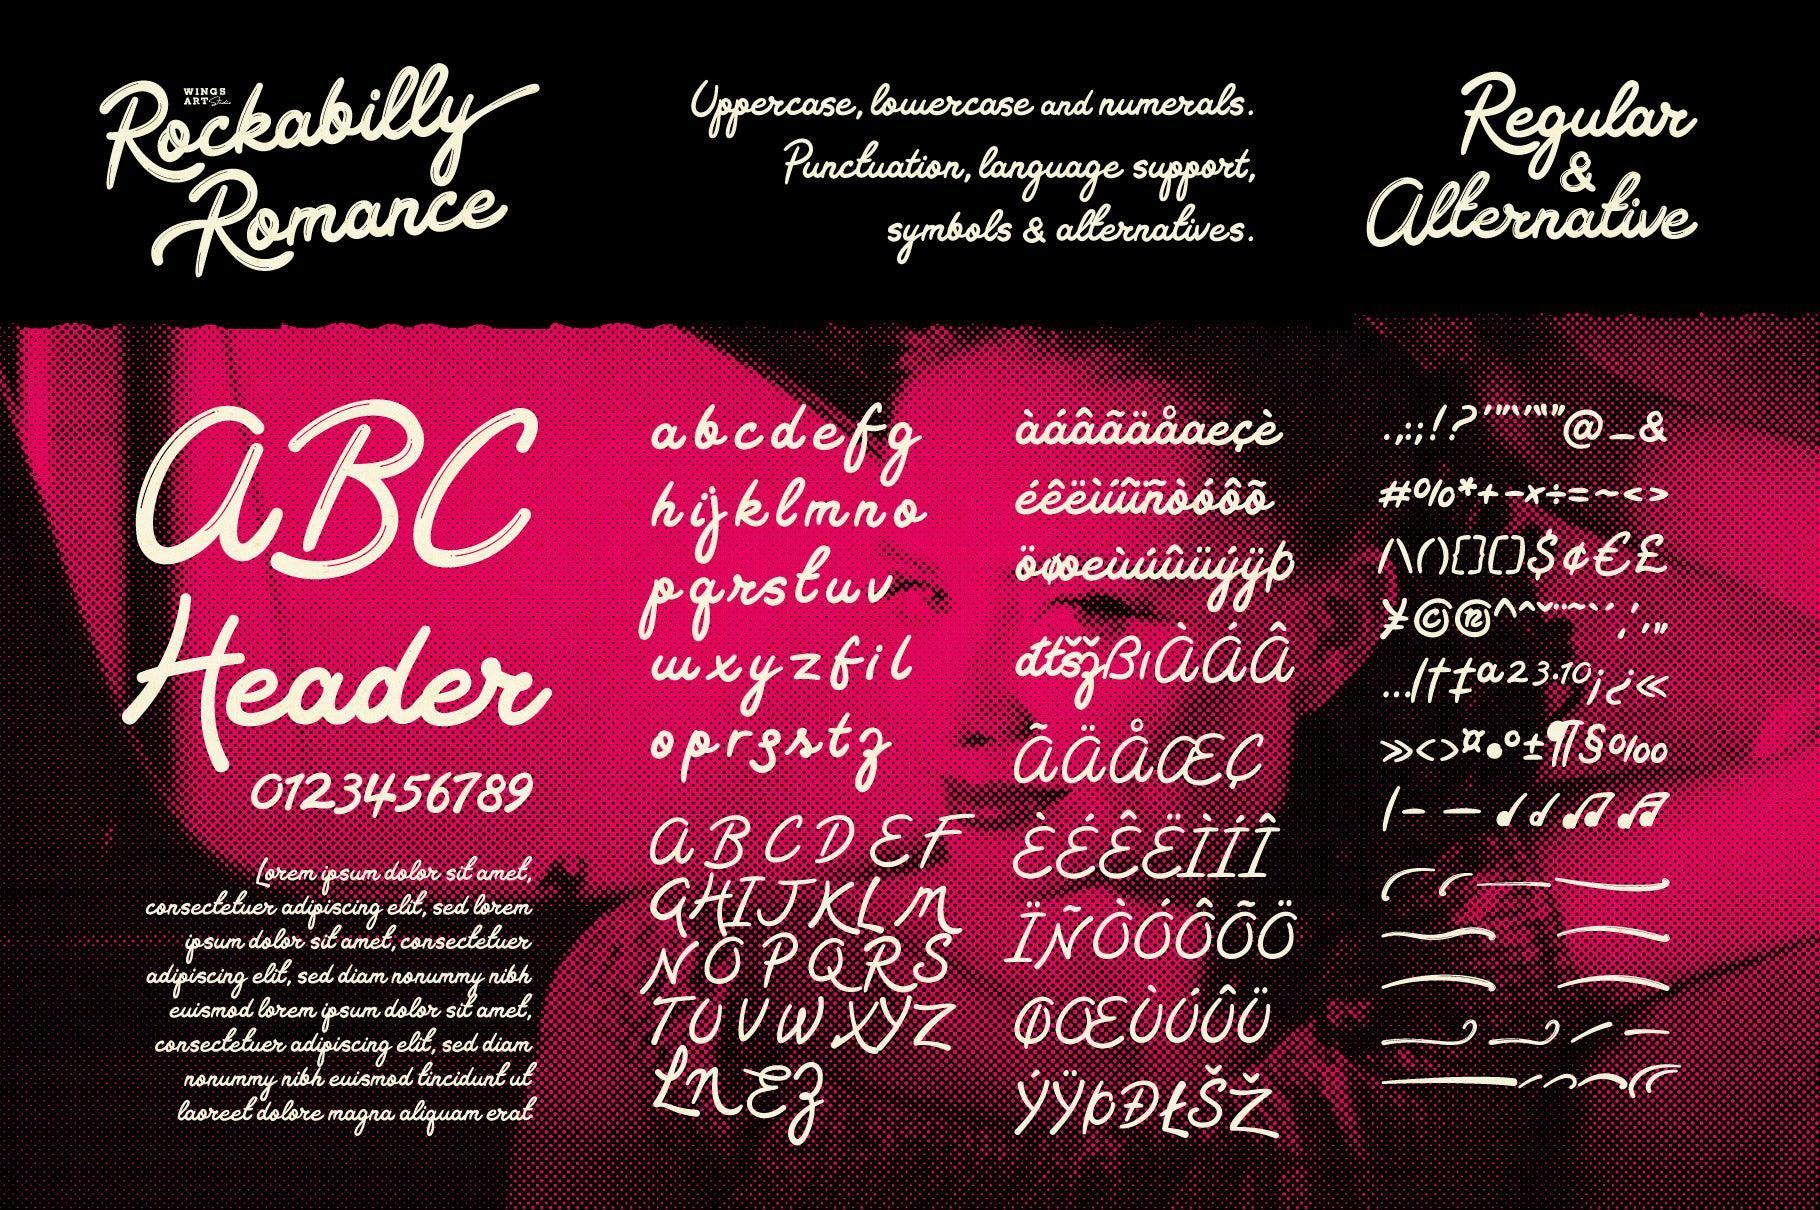 Rockabilly
WINGS
ART Studio
Romance
Uppercase, lowercase and numerals.
Punctuation, language support,
symbols & alternatives.
Regular
&
Alternative
ABC
Header
0123456789
Lorem ipsum dolor sit amet,
consectetuer adipiscing elit, sed lorem
ipsum dolor sit amet, consectetuer
adipiscing elit, sed diam nonummy nibh
euismod lorem ipsum dolor sit amet,
consectetuer adipiscing elit, sed diam
nonummy nibh euismod tincidunt ut
laoreet dolore magna aliquam erat
a b c d e f g
h i j k l m n o
p q r s t u v
w x y z f i l
o p r s s t z
A B C D E F
G H I J K L M
N O P Q R S
T U V W X Y Z
L N E Z
àáâãäåæçè
éêëìíîïñòóôõ
öøœùúûüýÿþ
đłšžßıÀÁÂ
ÃÄÅŒÇ
ÈÉÊËÌÍÎ
ÏÑÒÓÔÕÖ
ØŒÙÚÛÜ
ÝŸÞĐŁŠŽ
.,:;!?'"‘’“”@_&
#%*+-×÷=~<>
/\()[]{}$¢€£
¥©®^ˆˇ¨¯˜`´¸‚'„
…|†‡ª²³·¹º¡¿«
»‹›¤•°±¶§‰
|– — ♩ ♩ ♫ ♬